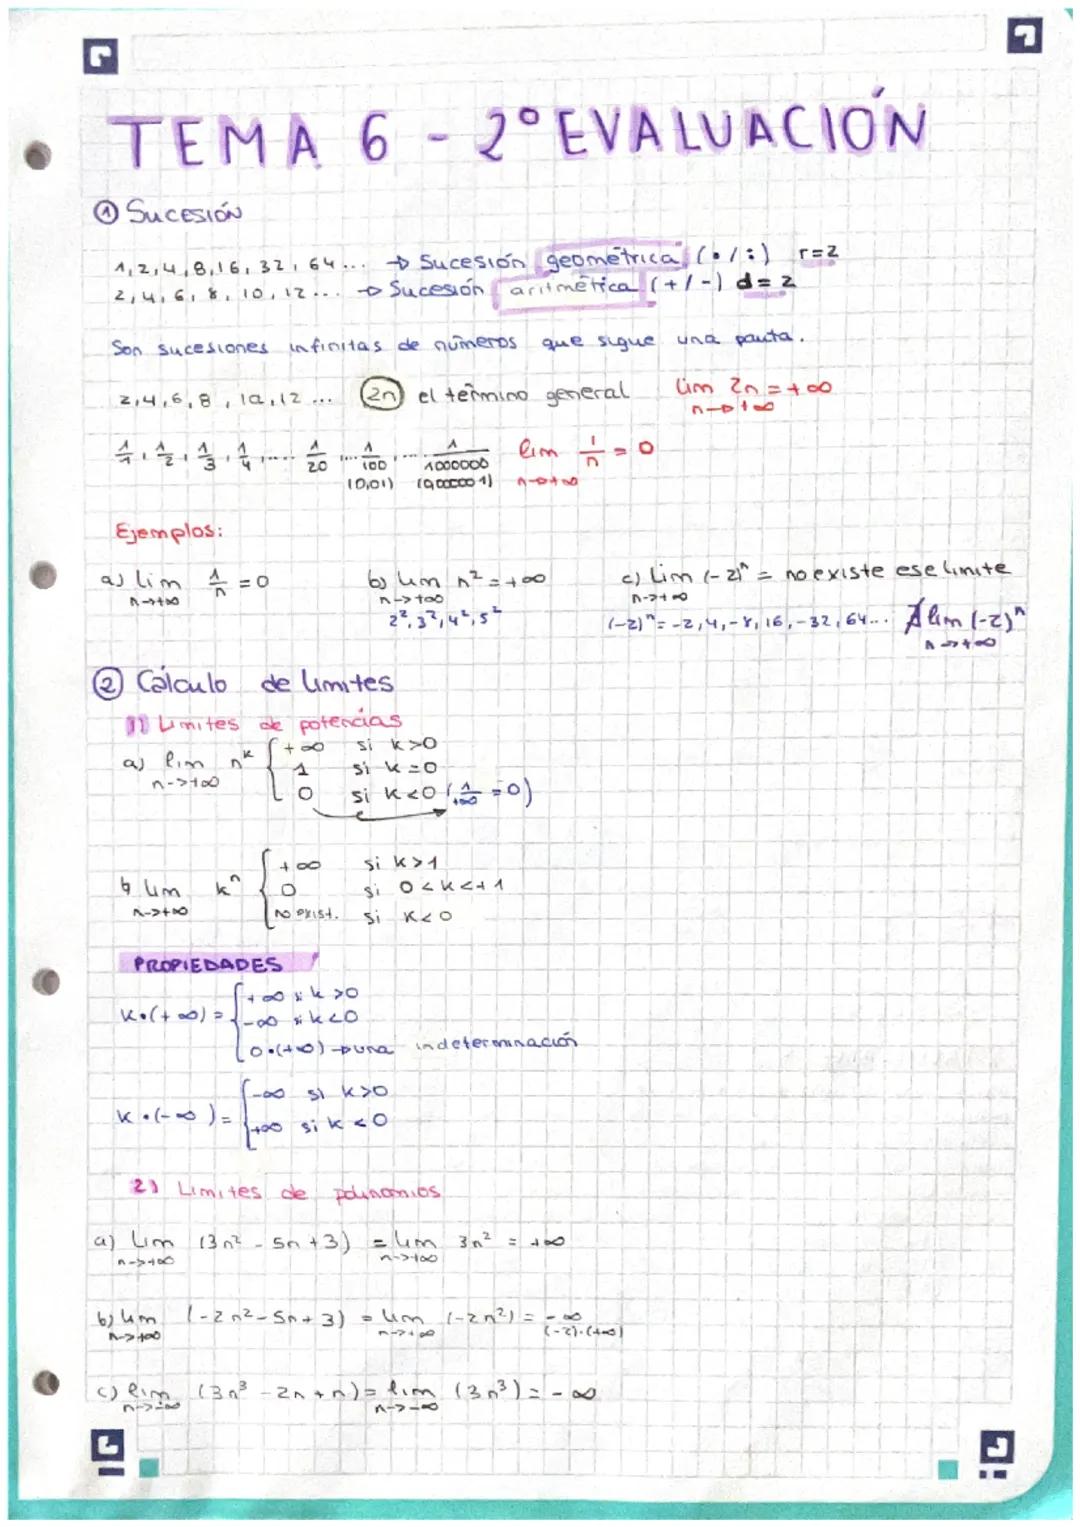 TEMA 6 - 2º EVALUACIÓN
① Sucesión
1, 2, 4, 8, 16, 32, 64... → Sucesión geométrica (• / :) r=2
2, 4, 6, 8, 10, 12... → Sucesión aritmética (+ / -) d = 2
Son sucesiones infinitas de números que sigue una pauta.
2, 4, 6, 8, 10, 12 ... 2n el término general lim 2n = +∞
n→+∞
1/1, 1/2, 1/3, 1/4, .... 1/20 ,... 1/100 ,... 1/1000000 lim 1/n = 0
(0,01) (0,000001) n→+∞
Ejemplos:
a) lim 1/n = 0 b) lim n² = +∞ c) lim (-2)ⁿ = no existe ese limite
n→+∞ n→+∞ n→+∞
2², 3², 4², 5² (-2)ⁿ = -2, 4, -8, 16, -32, 64... ∄ lim (-2)ⁿ
n→+∞
② Cálculo de límites
1) Límites de potencias
a) lim nᵏ { +∞ si k>0
n->+∞ 1 si k=0
0 si k<0 (1/+∞ = 0)
b lim kⁿ { +∞ si k>1
n->+∞ 0 si 0<k<+1
no exist. si k<0
PROPIEDADES
k•(+∞) = { +∞ si k >0
-∞ si k<0
0•(+∞) → una indeterminación
k •(-∞) = { -∞ si k>0
+∞ si k <0
2) Limites de polinomios
a) Lim (3n² - 5n +3) = lim 3n² = +∞
n->+∞ n->+∞
b) lim (-2n² - 5n + 3) = lim (-2n²) = -∞
n->+∞ n->+∞ (-2)·(+∞)
c) lim (3n³ - 2n + n) = lim (3n³) = -∞
n->-∞ n->-∞